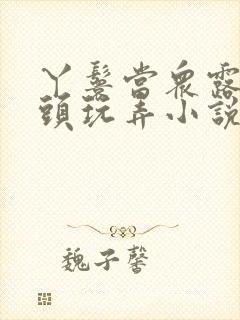 丫鬟當眾露
頭玩弄小說
魏子馨